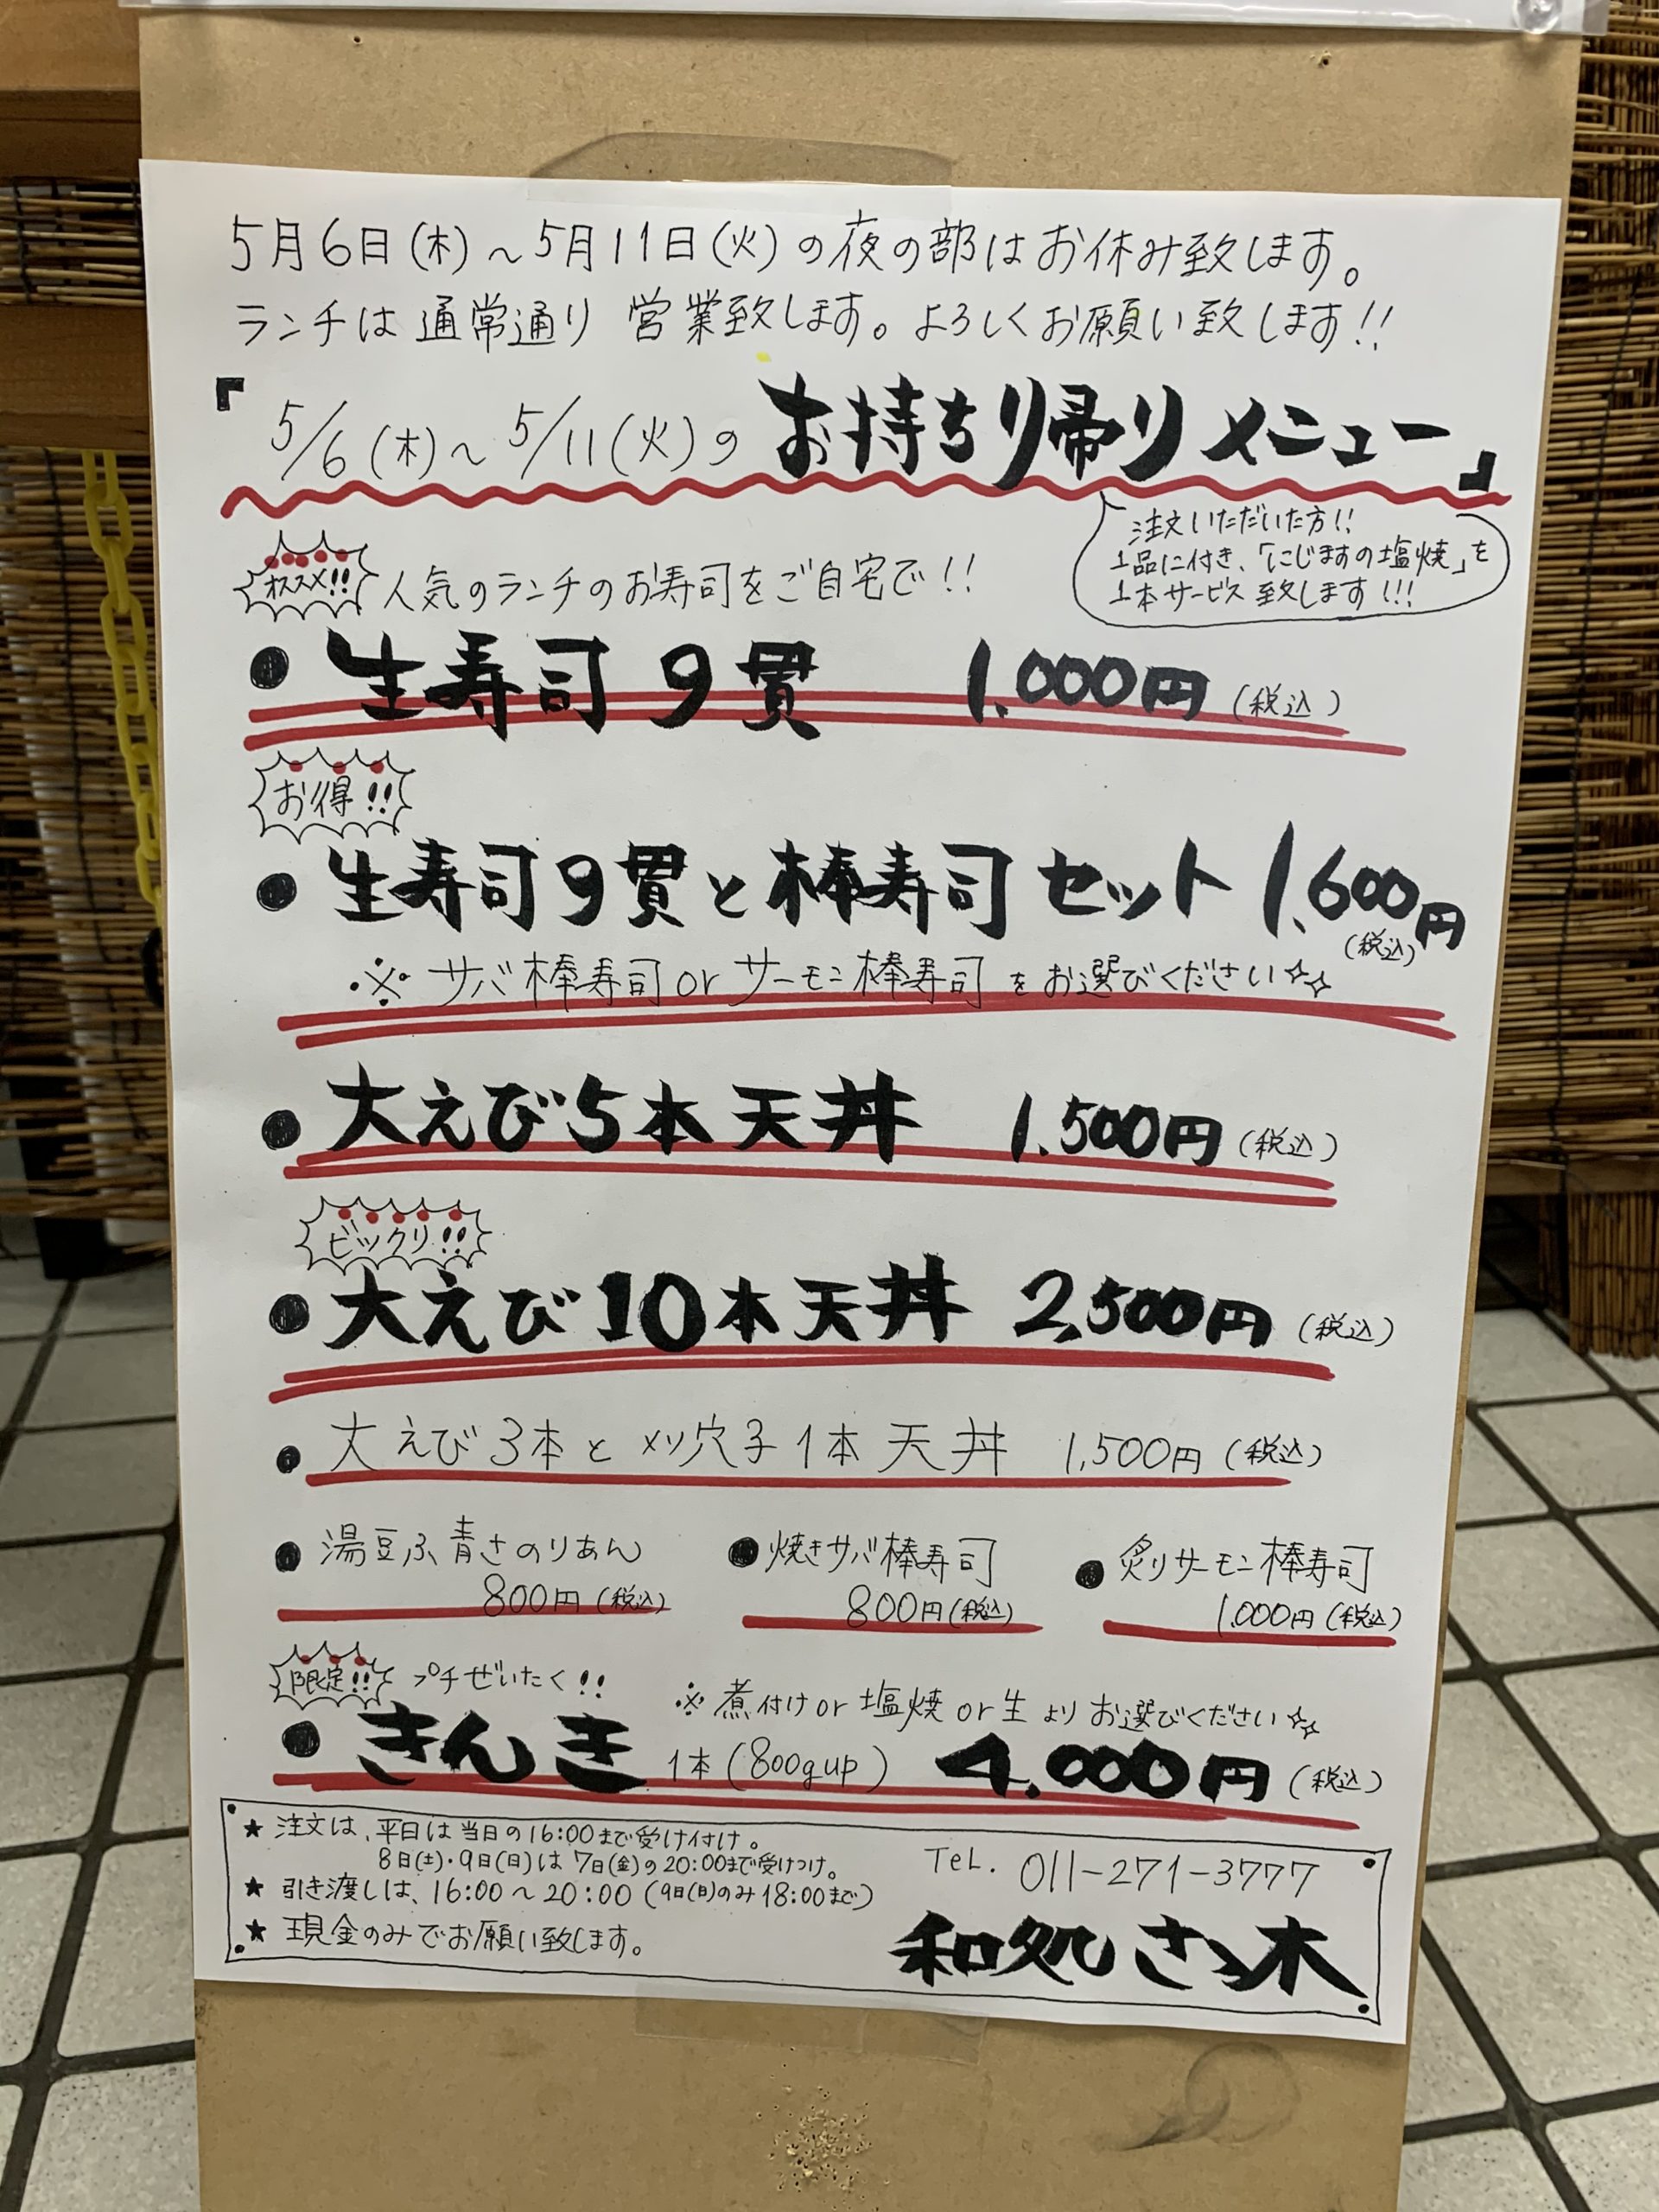 5月6日(木)～5月11日(火)の夜の部はお休み致します。
ランチは通常通り 営業致します。よろしくお願い致します!!
『5/6(木)～5/11(火)のお持ち帰りメニュー』
注文いただいた方!!
1品に付き、「にじますの塩焼」を
1本サービス致します!!!
オススメ!! 人気のランチのお寿司をご自宅で!!
●生寿司9貫 1.000円(税込)
お得!!
●生寿司9貫と棒寿司セット 1.600円(税込)
※サバ棒寿司orサーモン棒寿司をお選びください☆☆
●大えび5本天丼 1.500円(税込)
ビックリ!!
●大えび10本天丼 2,500円(税込)
●大えび3本とメソ穴子1本天丼 1,500円(税込)
●湯豆ふ青さのりあん 800円(税込)
●焼きサバ棒寿司 800円(税込)
●炙りサーモン棒寿司 1.000円(税込)
限定!! プチぜいたく!!
※煮付けor塩焼or生よりお選びください☆☆
●きんき 1本(800gup) 4.000円(税込)
★注文は、平日は当日の16:00まで受け付け。
8日(土)・9日(日)は7日(金)の20:00まで受けつけ。
★引き渡しは、16:00～20:00(9日(日)のみ18:00まで)
★現金のみでお願い致します。
TEL. 011-271-3777
和処さゝ木